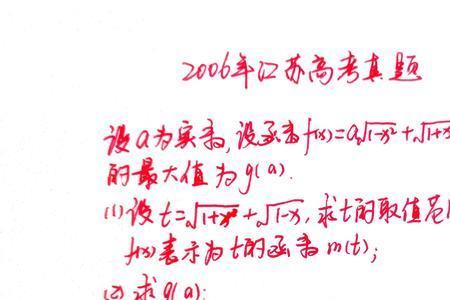 2006年江苏高考真题
设a为实数,设函数f(x)=a√1-x²+√1+x
的最大值为g(a).
(1)设t=√1+x+√1-x,求t的取值范
f(x)表示为t的函数m(t);
(2)求g(a);